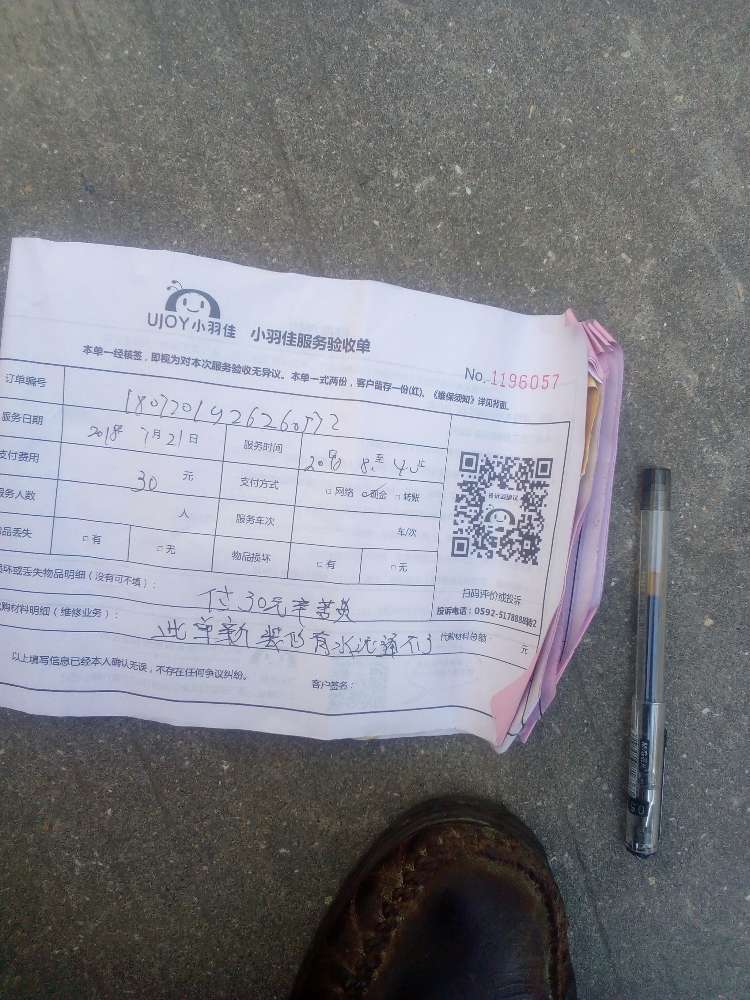 UJOY小羽佳 小羽佳服务验收单
本单一经核签，即视为对本次服务验收无异议。本单一式两份，客户留存一份(红)。《维保须知》详见背面。
No. 1196057
订单编号
服务日期 2018 7月21日 服务时间 8 至
支付费用 30 元 支付方式 □网络 □现金 □转账
服务人数 人 服务车次 车/次
品丢失 □有 □无 物品损坏 □有 □无
损坏或丢失物品明细（没有可不填）： 付30元辛苦费
购材料明细（维修业务）： 此单新装的有水 代购材料总额： 元
以上填写信息已经本人确认无误，不存在任何争议纠纷。 客户签名：
投诉或建议
扫码评价或投诉
投诉电话：0592-5178888